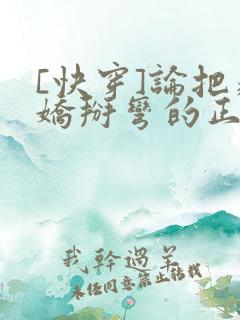 [快穿]論把
嬌掰彎的正
我幹過羊
未經同意禁止轉載